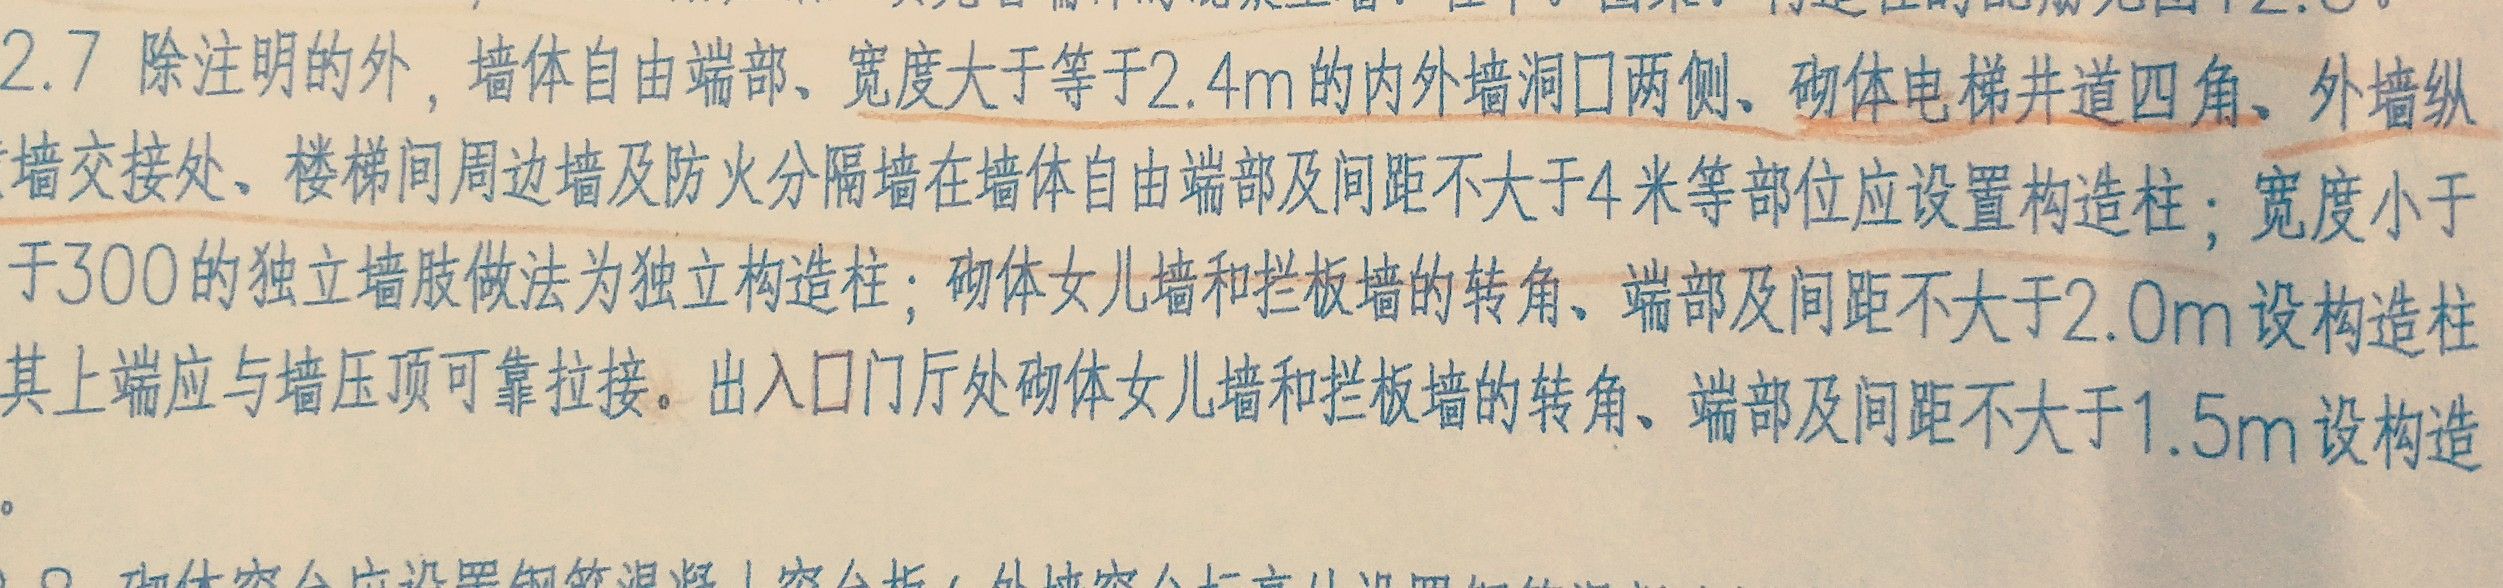 2.7 除注明的外，墙体自由端部、宽度大于等于2.4m的内外墙洞口两侧、砌体电梯井道四角、外墙纵
墙交接处、楼梯间周边墙及防火分隔墙在墙体自由端部及间距不大于4米等部位应设置构造柱；宽度小于
于300的独立墙肢做法为独立构造柱；砌体女儿墙和拦板墙的转角、端部及间距不大于2.0m设构造柱
其上端应与墙压顶可靠拉接。出入口门厅处砌体女儿墙和拦板墙的转角、端部及间距不大于1.5m设构造
。